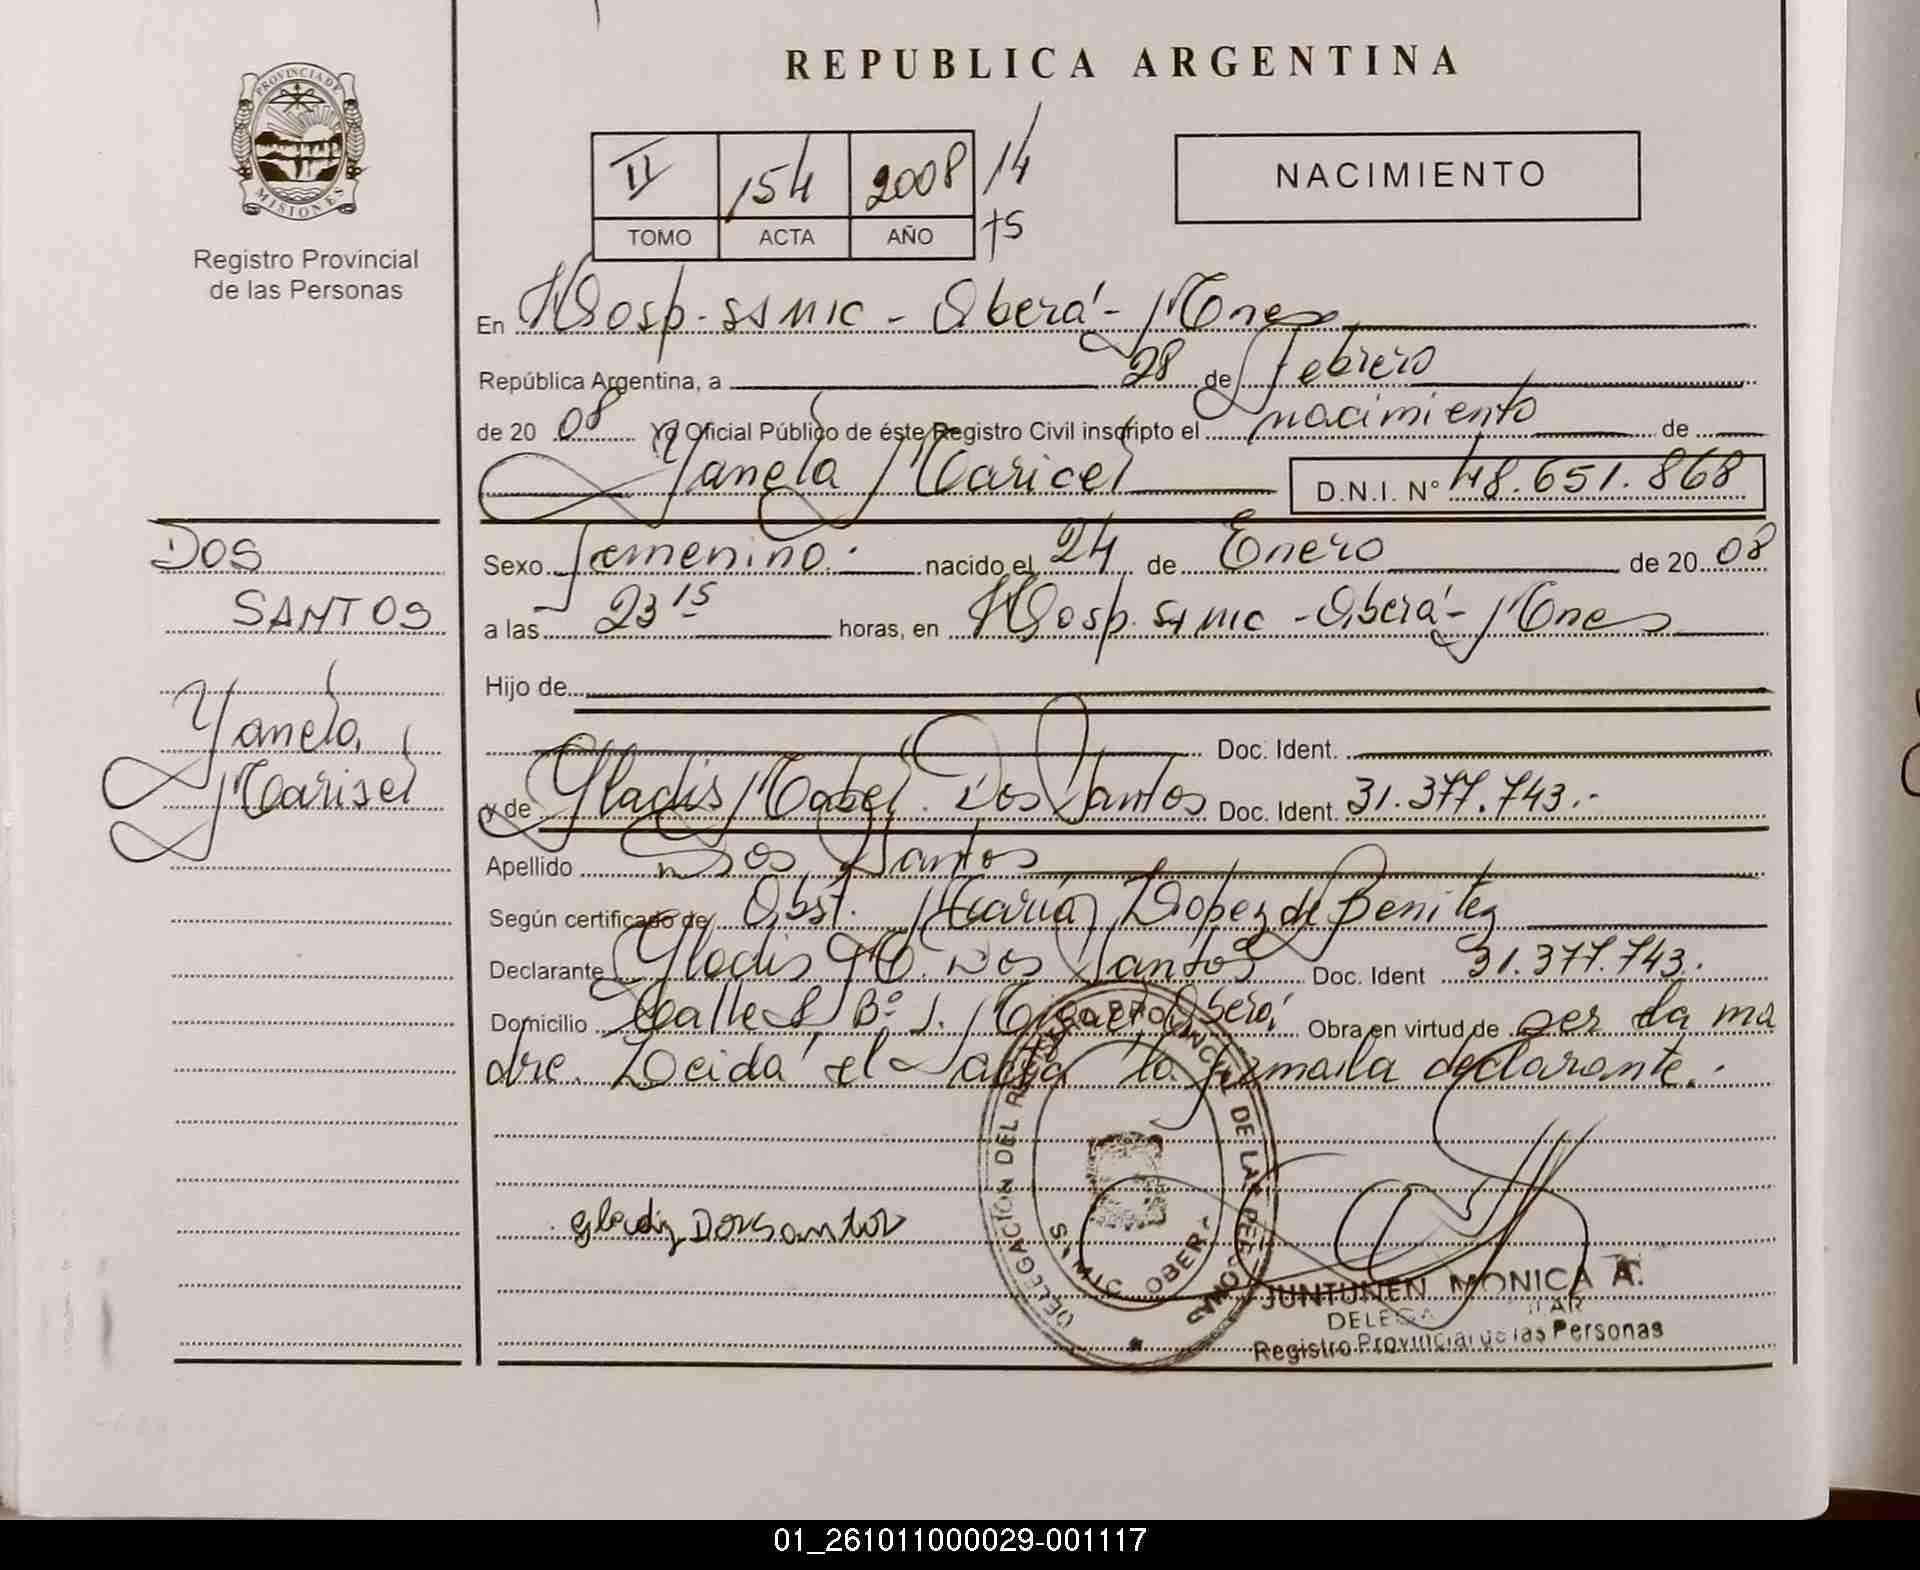 REPUBLICA ARGENTINA
PROVINCIA DE
MISIONES
Registro Provincial
de las Personas
II 154 2008 /14
TOMO ACTA AÑO
NACIMIENTO
En Hosp. SAMIC - Oberá - Mnes
República Argentina, a 28 de Febrero
de 20 08 Yo Oficial Público de éste Registro Civil inscripto el nacimiento de
Yanela Maricel D.N.I. N° 48.651.868
DOS
SANTOS
Yanela
Marisel
Sexo femenino. nacido el 24 de Enero de 20 08
a las 23 15 horas, en Hosp. SAMIC - Oberá - Mnes
Hijo de
Doc. Ident.
y de Gladis Mabel Dos Santos Doc. Ident. 31.377.743.-
Apellido Dos Santos
Según certificado de Obst. María Lopez de Benitez
Declarante Gladis M. Dos Santos Doc. Ident 31.377.743.
Domicilio Calle S/ Bº. Oberá, Obra en virtud de ser la ma
dre. Leida el acta la firma la declarante.-
DELEGACION DEL REGISTRO PROVINCIAL DE LAS PERSONAS
SAMIC OBERA
Gladiz Dossantos
JUNTUNEN MONICA A.
Registro Provincial de las Personas
01_261011000029-001117